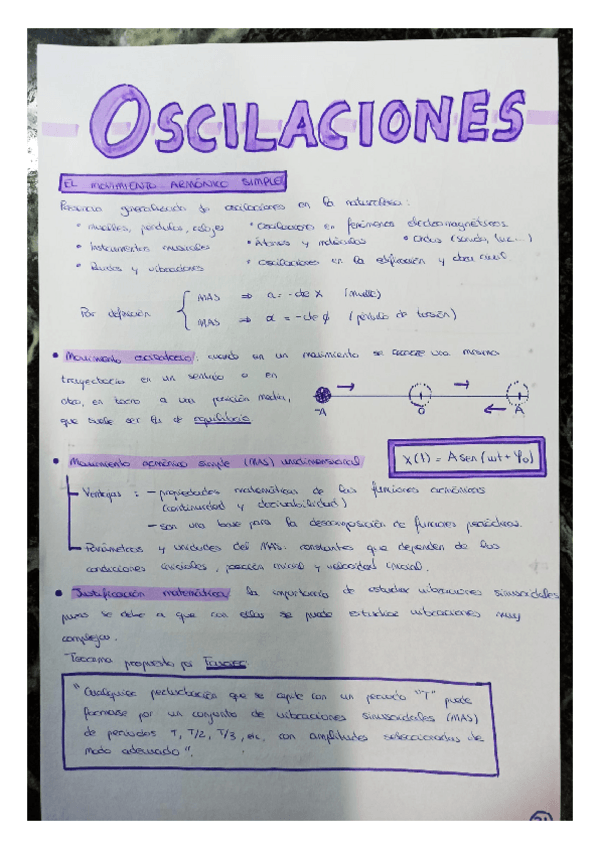 OSCILACIONES
EL MOVIMIENTO ARMÓNICO SIMPLE
Presencia generalizada de oscilaciones en la naturaleza:
• muelles, péndulos, relojes • Oscilaciones en fenómenos electromagnéticos
• Instrumentos musicales • Átomos y moléculas • Ondas (sonido, luz...)
• Ruidos y vibraciones • Oscilaciones en la edificación y obra civil
MAS ⇒ a = -cte x (muelle)
Por definición
MAS ⇒ α = -cte φ (péndulo de torsión)
• Movimiento oscilatorio: cuando en un movimiento se recorre una misma
trayectoria en un sentido o en
otro, en torno a una posición media,
que suele ser la de equilibrio
-A O A
• Movimiento armónico simple (MAS) unidimensional
x(t) = A sen (ωt + φ₀)
Ventajas: - propiedades matemáticas de las funciones armónicas
(continuidad y derivabilidad)
- son una base para la descomposición de funciones periódicas.
Parámetros y unidades del MAS: constantes que dependen de las
condiciones iniciales, posición inicial y velocidad inicial.
• Justificación matemática: la importancia de estudiar vibraciones sinusoidales
puras se debe a que con ellas se puede estudiar vibraciones muy
complejas.
- Teorema propuesto por
"Cualquier perturbación que se repite con un periodo "T" puede
formarse por un conjunto de vibraciones sinusoidales (MAS)
de periodos T, T/2, T/3, etc, con amplitudes seleccionadas de
modo adecuado".